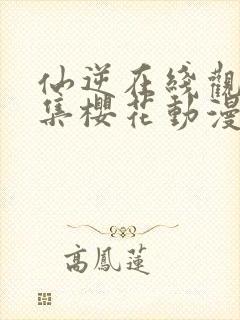 仙逆在綫觀
集櫻花動漫
高鳳蓮